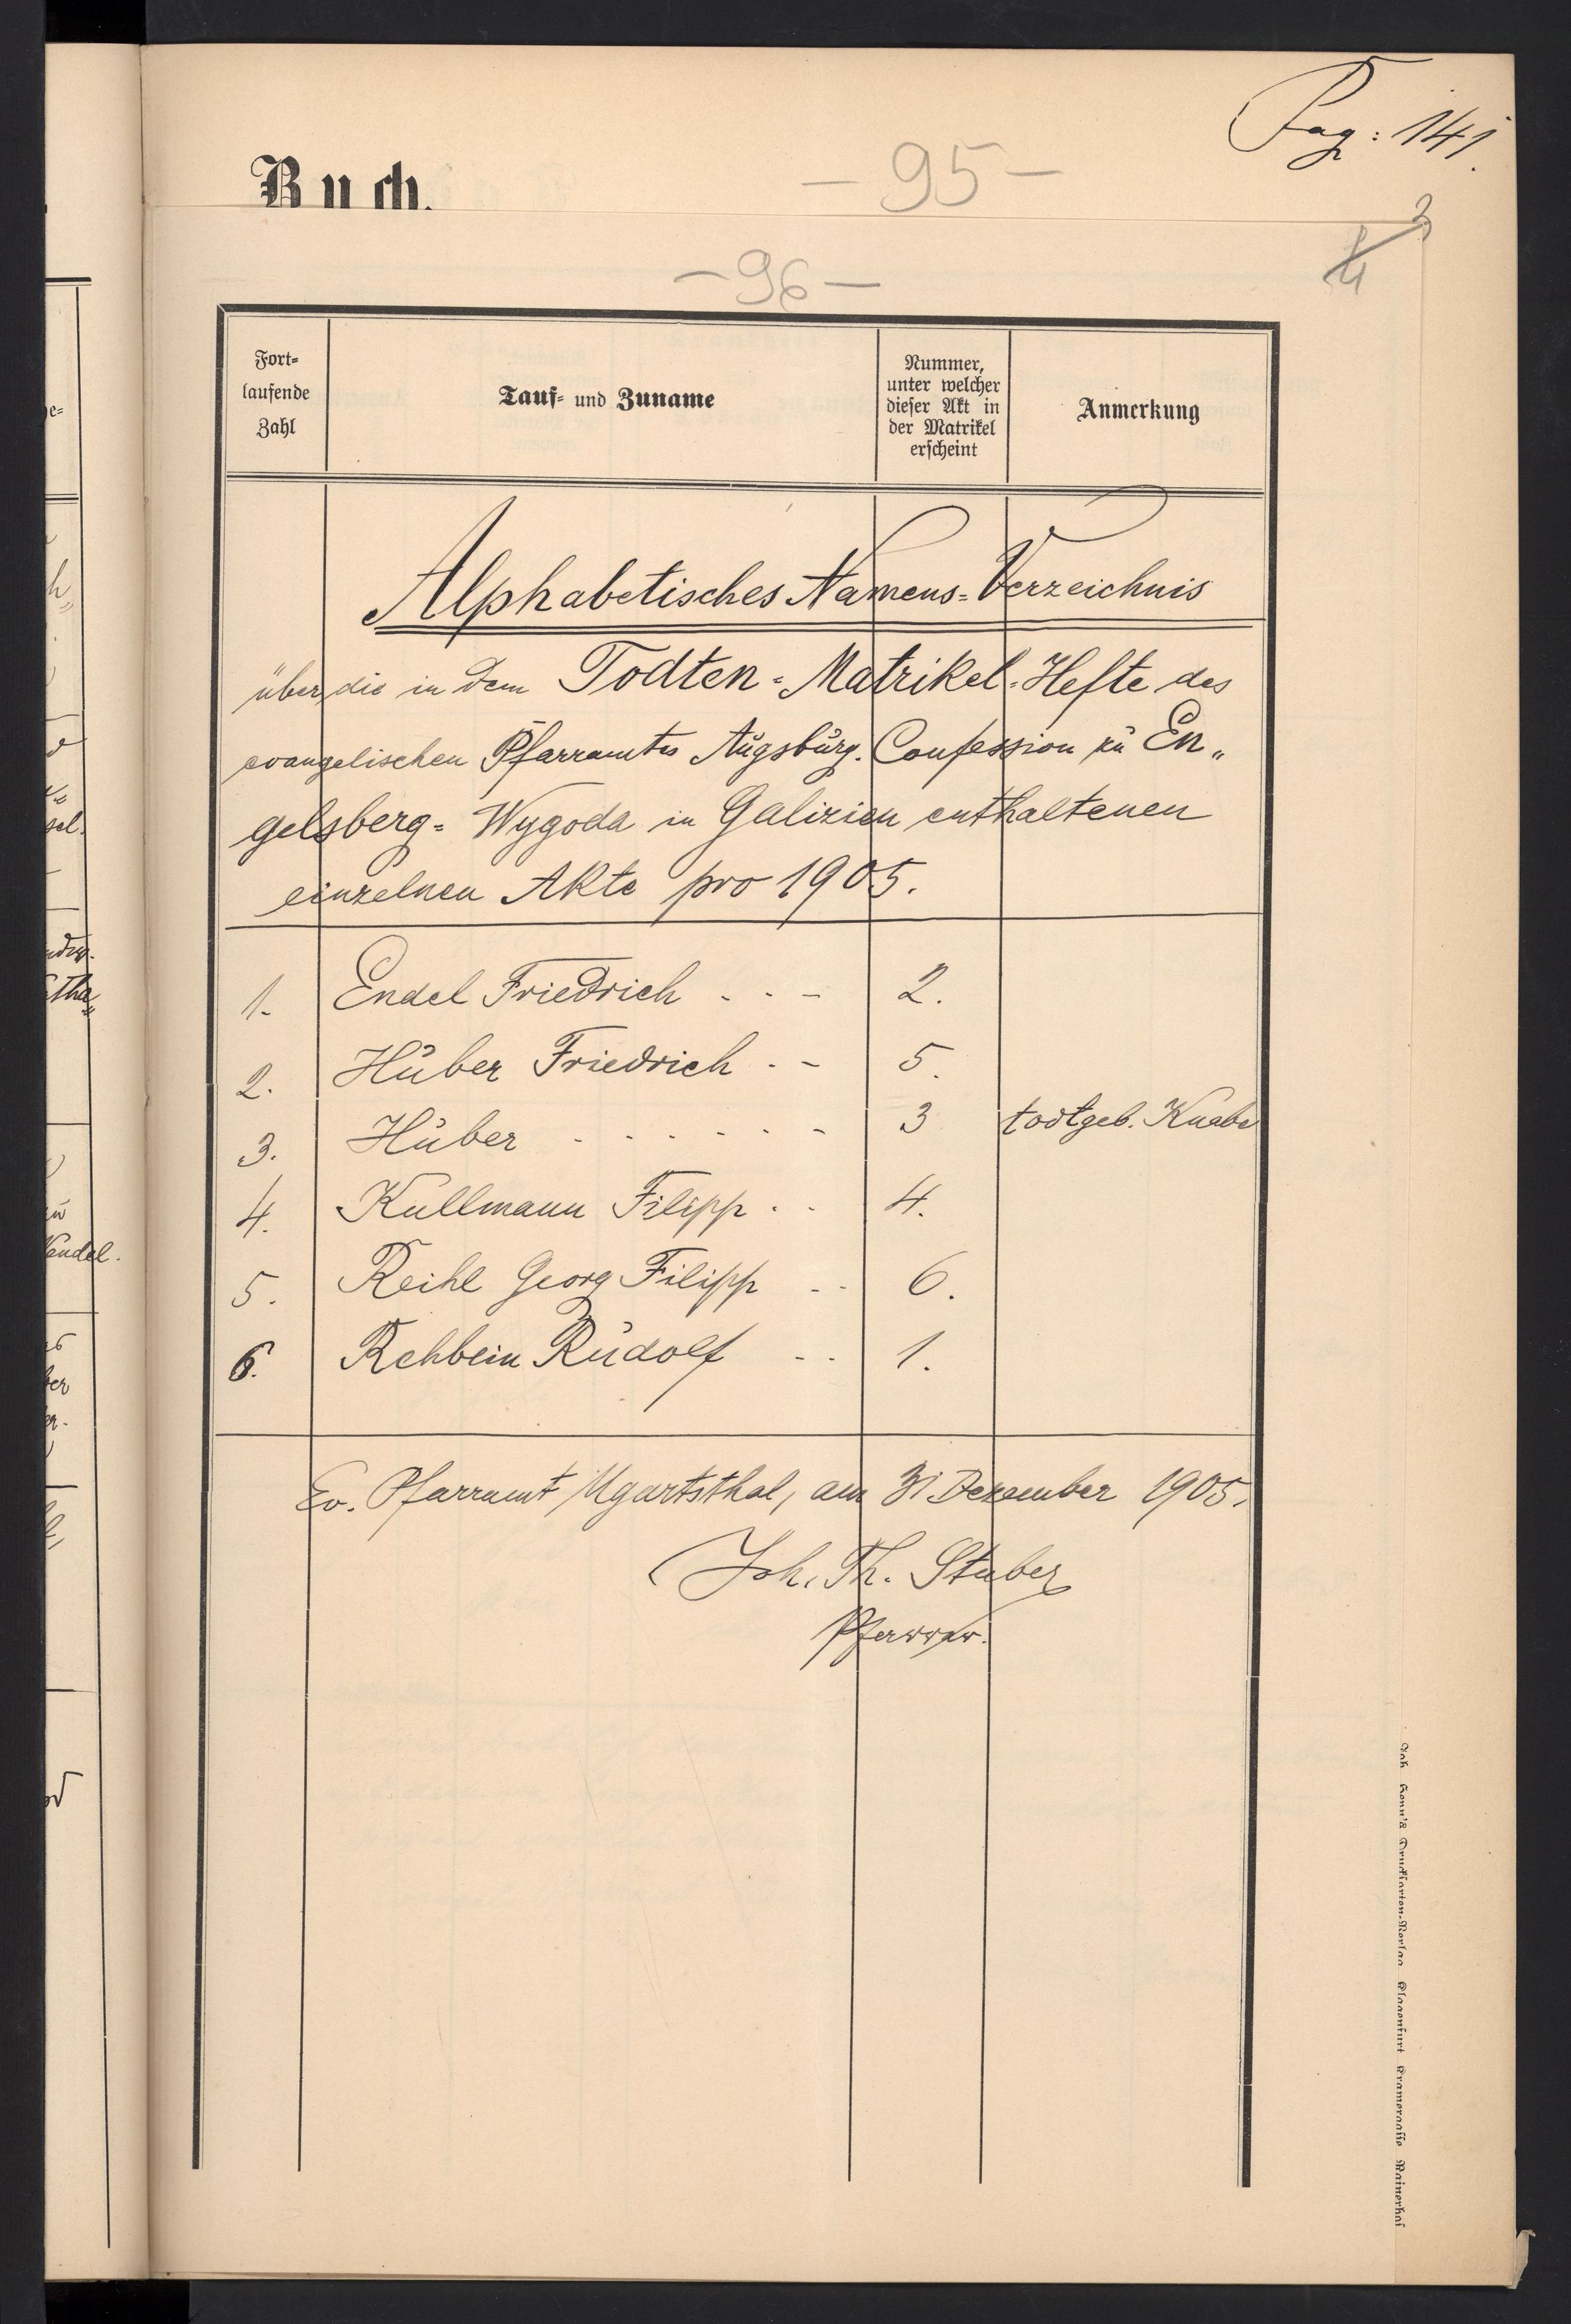 Pag: 141.
Buch.
- 95 -
3
4
- 96 -
Fort-
laufende
Zahl
Tauf- und Zuname
Nummer,
unter welcher
dieser Akt in
der Matrikel
erscheint
Anmerkung
Alphabetisches Namens-Verzeichnis
über die in dem Todten-Matrikel-Hefte des
evangelischen Pfarramtes Augsburg. Confession zu En„
gelsberg-Wygoda in Galizien enthaltenen
einzelnen Akte pro 1905.
1. Endel Friedrich . . - 2.
2. Huber Friedrich . - 5.
3. Huber . . . . . . - 3 todtgeb. Knabe
4. Kullmann Filipp . . 4.
5. Reihl Georg Filipp . . 6.
6. Rehbein Rudolf . . 1.
Ev. Pfarramt Ugartsthal, am 31 Dezember 1905.
Joh. Th. Stuber
Pfarrer.
Joh. Leon's Drucksorten-Verlag Klagenfurt Kramergasse Rainerhof